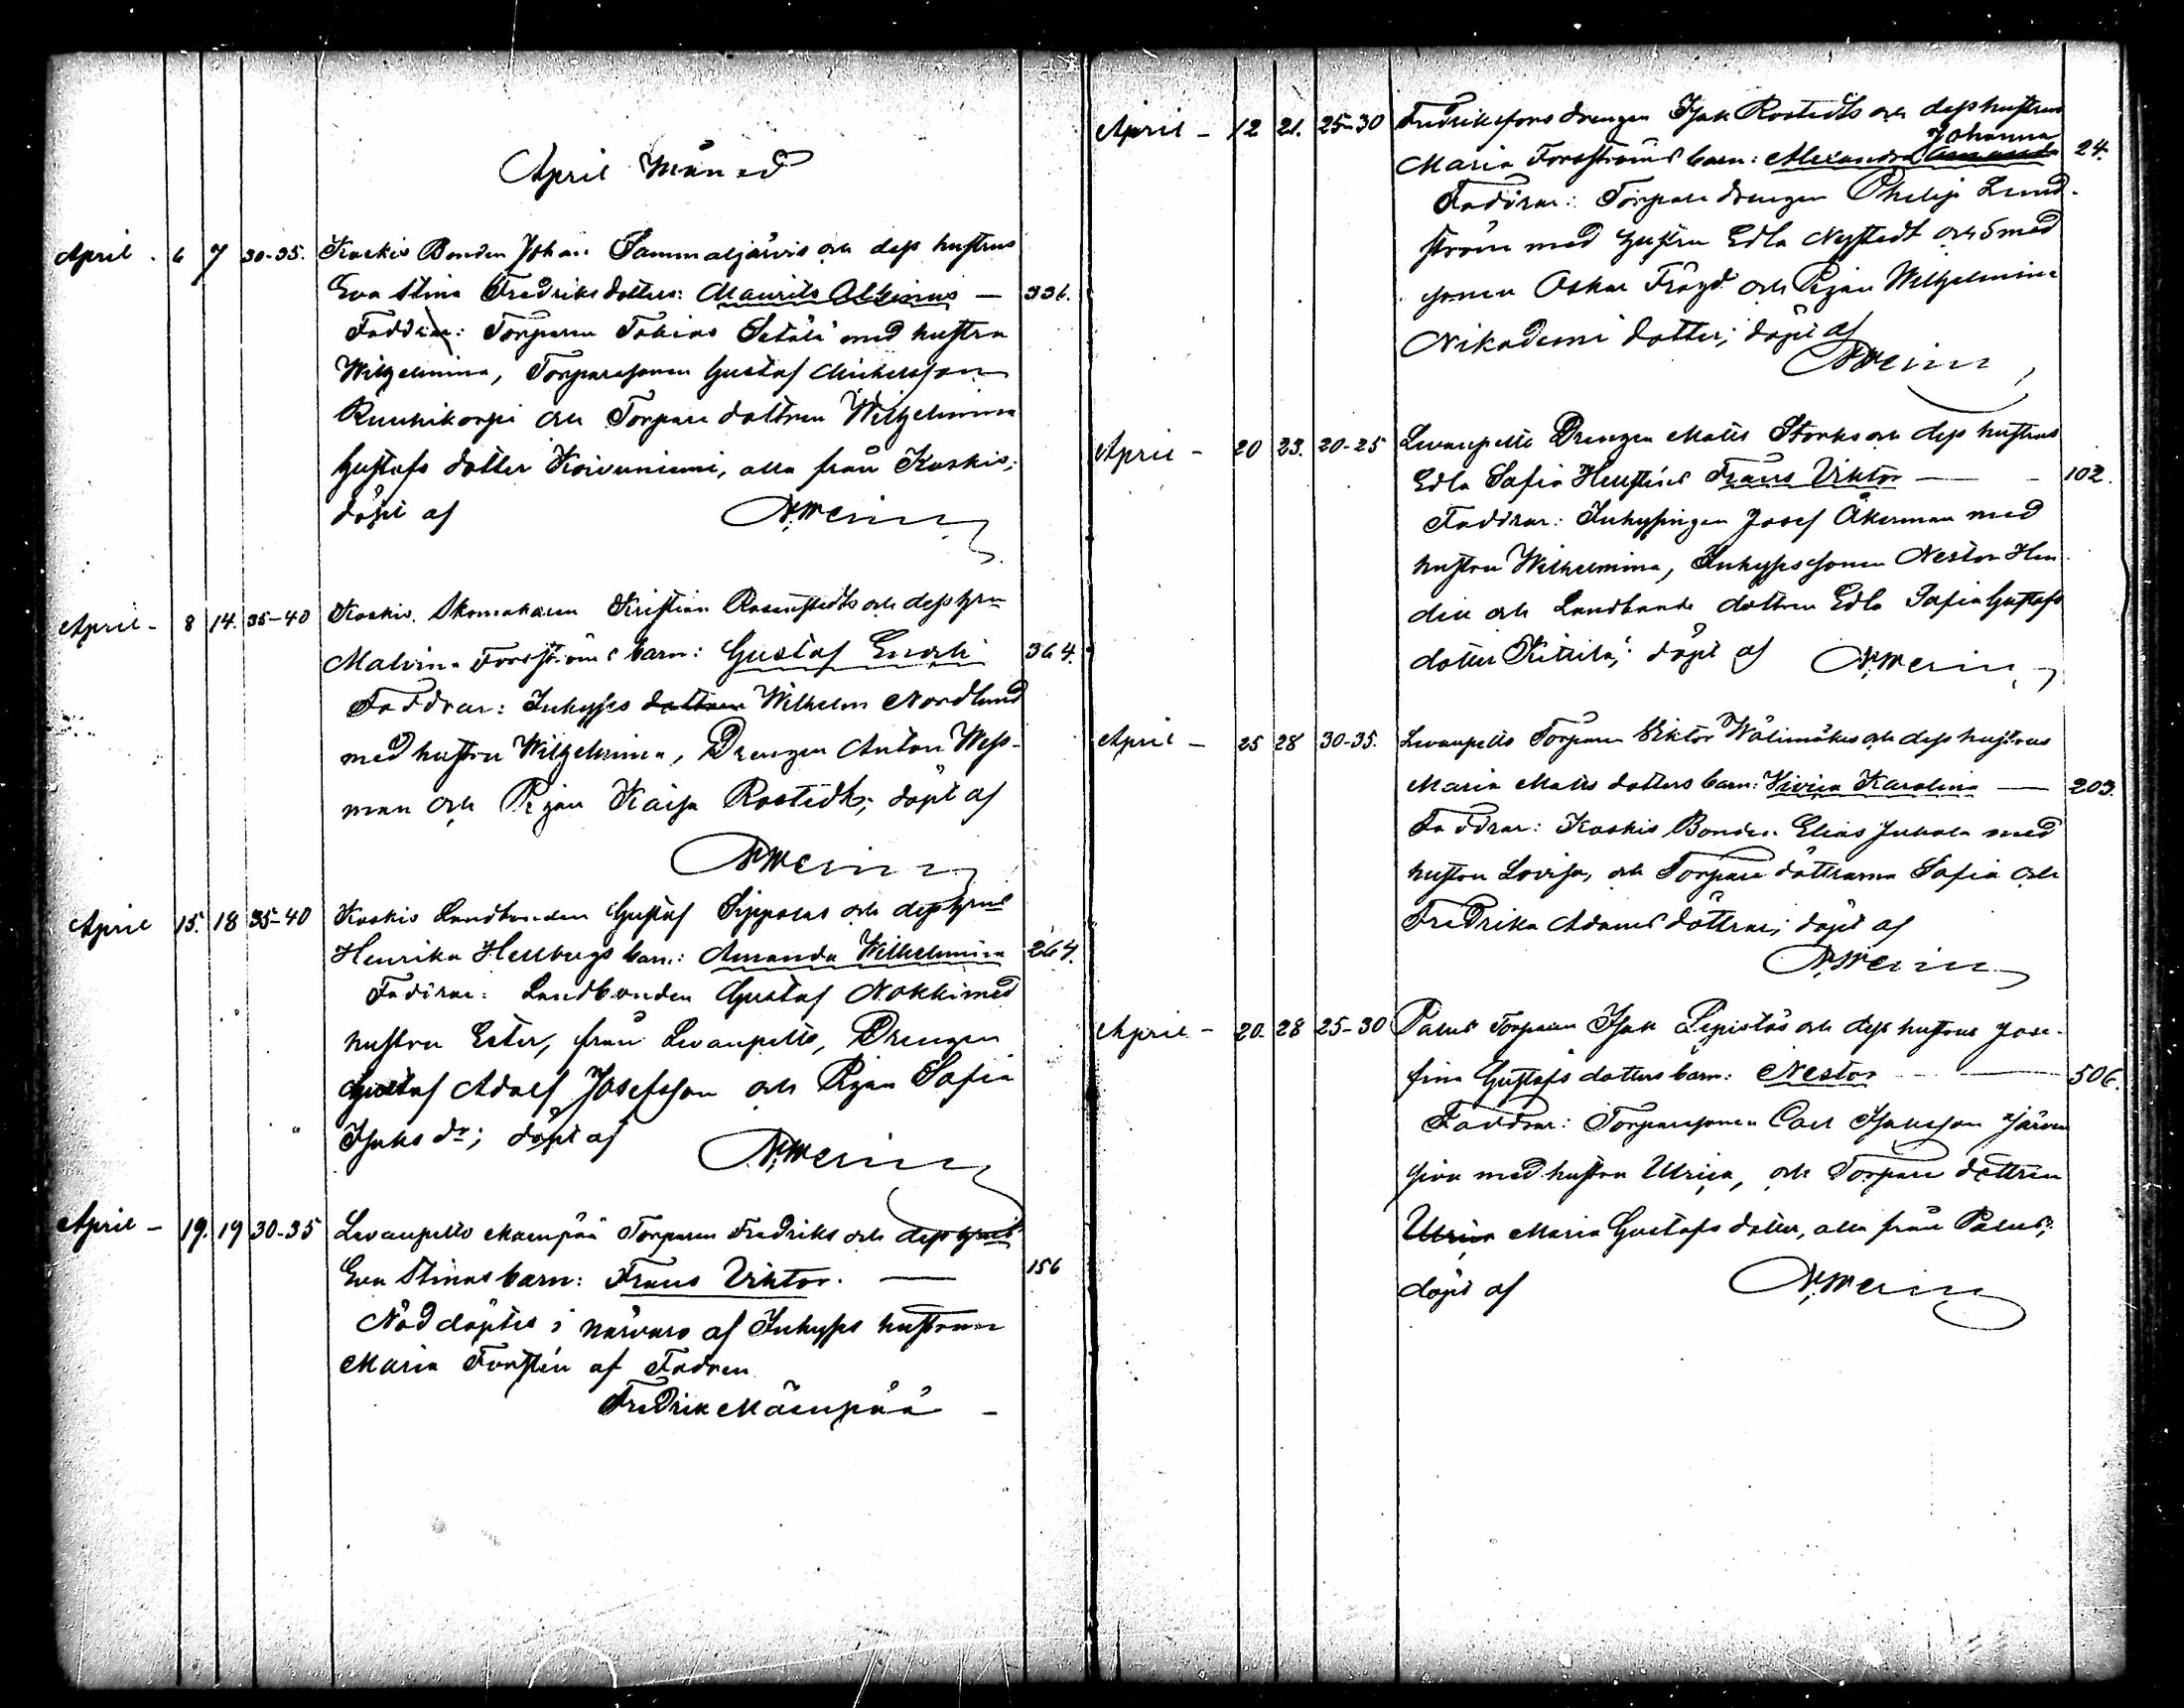 April Månad
April. 6 7 30-35. Koskis Bonden Johan Sammaljärvis och dess hustrus
Eva Stina Fredriksdotters: Maurits Albinus — 336.
Faddrar: Torparen Tobias Setälä med hustru
Wilhelmina, Torparesonen Gustaf Mickelsson
Ruuhikorpi och Torpare dottren Wilhelmina
Gustafs dotter Koivuniemi, alla från Koskis;
döpt af
April - 8 14. 35-40 Koskis Skomakaren Kristian Rosenstedts och dess hru
Malvina Forsströms barn: Gustaf Enok 364.
Faddrar: Inhyses dottren Wilhelm Nordlund
med hustru Wilhelmina, Drengen Anton Wess-
man och Pigan Kaisa Rostedt; döpt af
April 15. 18 35-40 Koskis Landbonden Gustaf Sippolas och dess hrus
Henrika Hellbergs barn: Amanda Wilhelmina 264.
Faddrar: Landbonden Gustaf Nokki med
hustru Ester, från Levanpelto, Drengen
Gustaf Adolf Josefsson och Pigan Sofia
Isaks dr; döpt af
April - 19. 19 30-35 Levanpelto Mäenpää Torparen Fredriks och dess hrus
Eva Stinas barn: Frans Viktor. — 156
Nöddöptes i närvaro af Inhyses hustrun
Maria Forstén af Fadren
Fredrik Mäenpää —
April - 12 21. 25-30 Fredriksfors drengen Isak Rostedts och dess hustrus
Johanna
Maria Forsströms barn: Alexandra Amanda 24.
Faddrar: Torpare drengen Philip Lind-
ström med hustru Edla Nystedt och Smed
sonen Oskar Fröjd och Pigan Wilhelmina
Nikodemi dotter; döpt af
April - 20 23. 20-25 Levanpelto Drengen Matts Storks och dess hustrus
Edla Sofia Hellsténs Frans Viktor — 102.
Faddrar: Inhysingen Josef Åkerman med
hustru Wilhelmina, Inhyses sonen Nestor
och Landbonde dottren Edla Sofia Gustafs
dotter Kittilä; döpt af
April - 25 28 30-35. Levanpelto Torparen Viktor Wälimäkis och dess hustrus
Maria Matts dotters barn: Karolina — 203.
Faddrar: Koskis Bonden Elias Juhola med
hustru Lovisa, och Torpare döttrarna Sofia och
Fredrika Adams döttrar; döpt af
April - 20. 28 25-30 Palus Torparen Isak Lepistös och dess hustrus Jose-
fina Gustafs dotters barn: Nestor — 506.
Faddrar: Torparesonen Carl Isaksson Järven
sivu med hustru Ulrica, och Torpare dottren
Ulrica Maria Gustafs dotter, alla från Palus;
döpt af